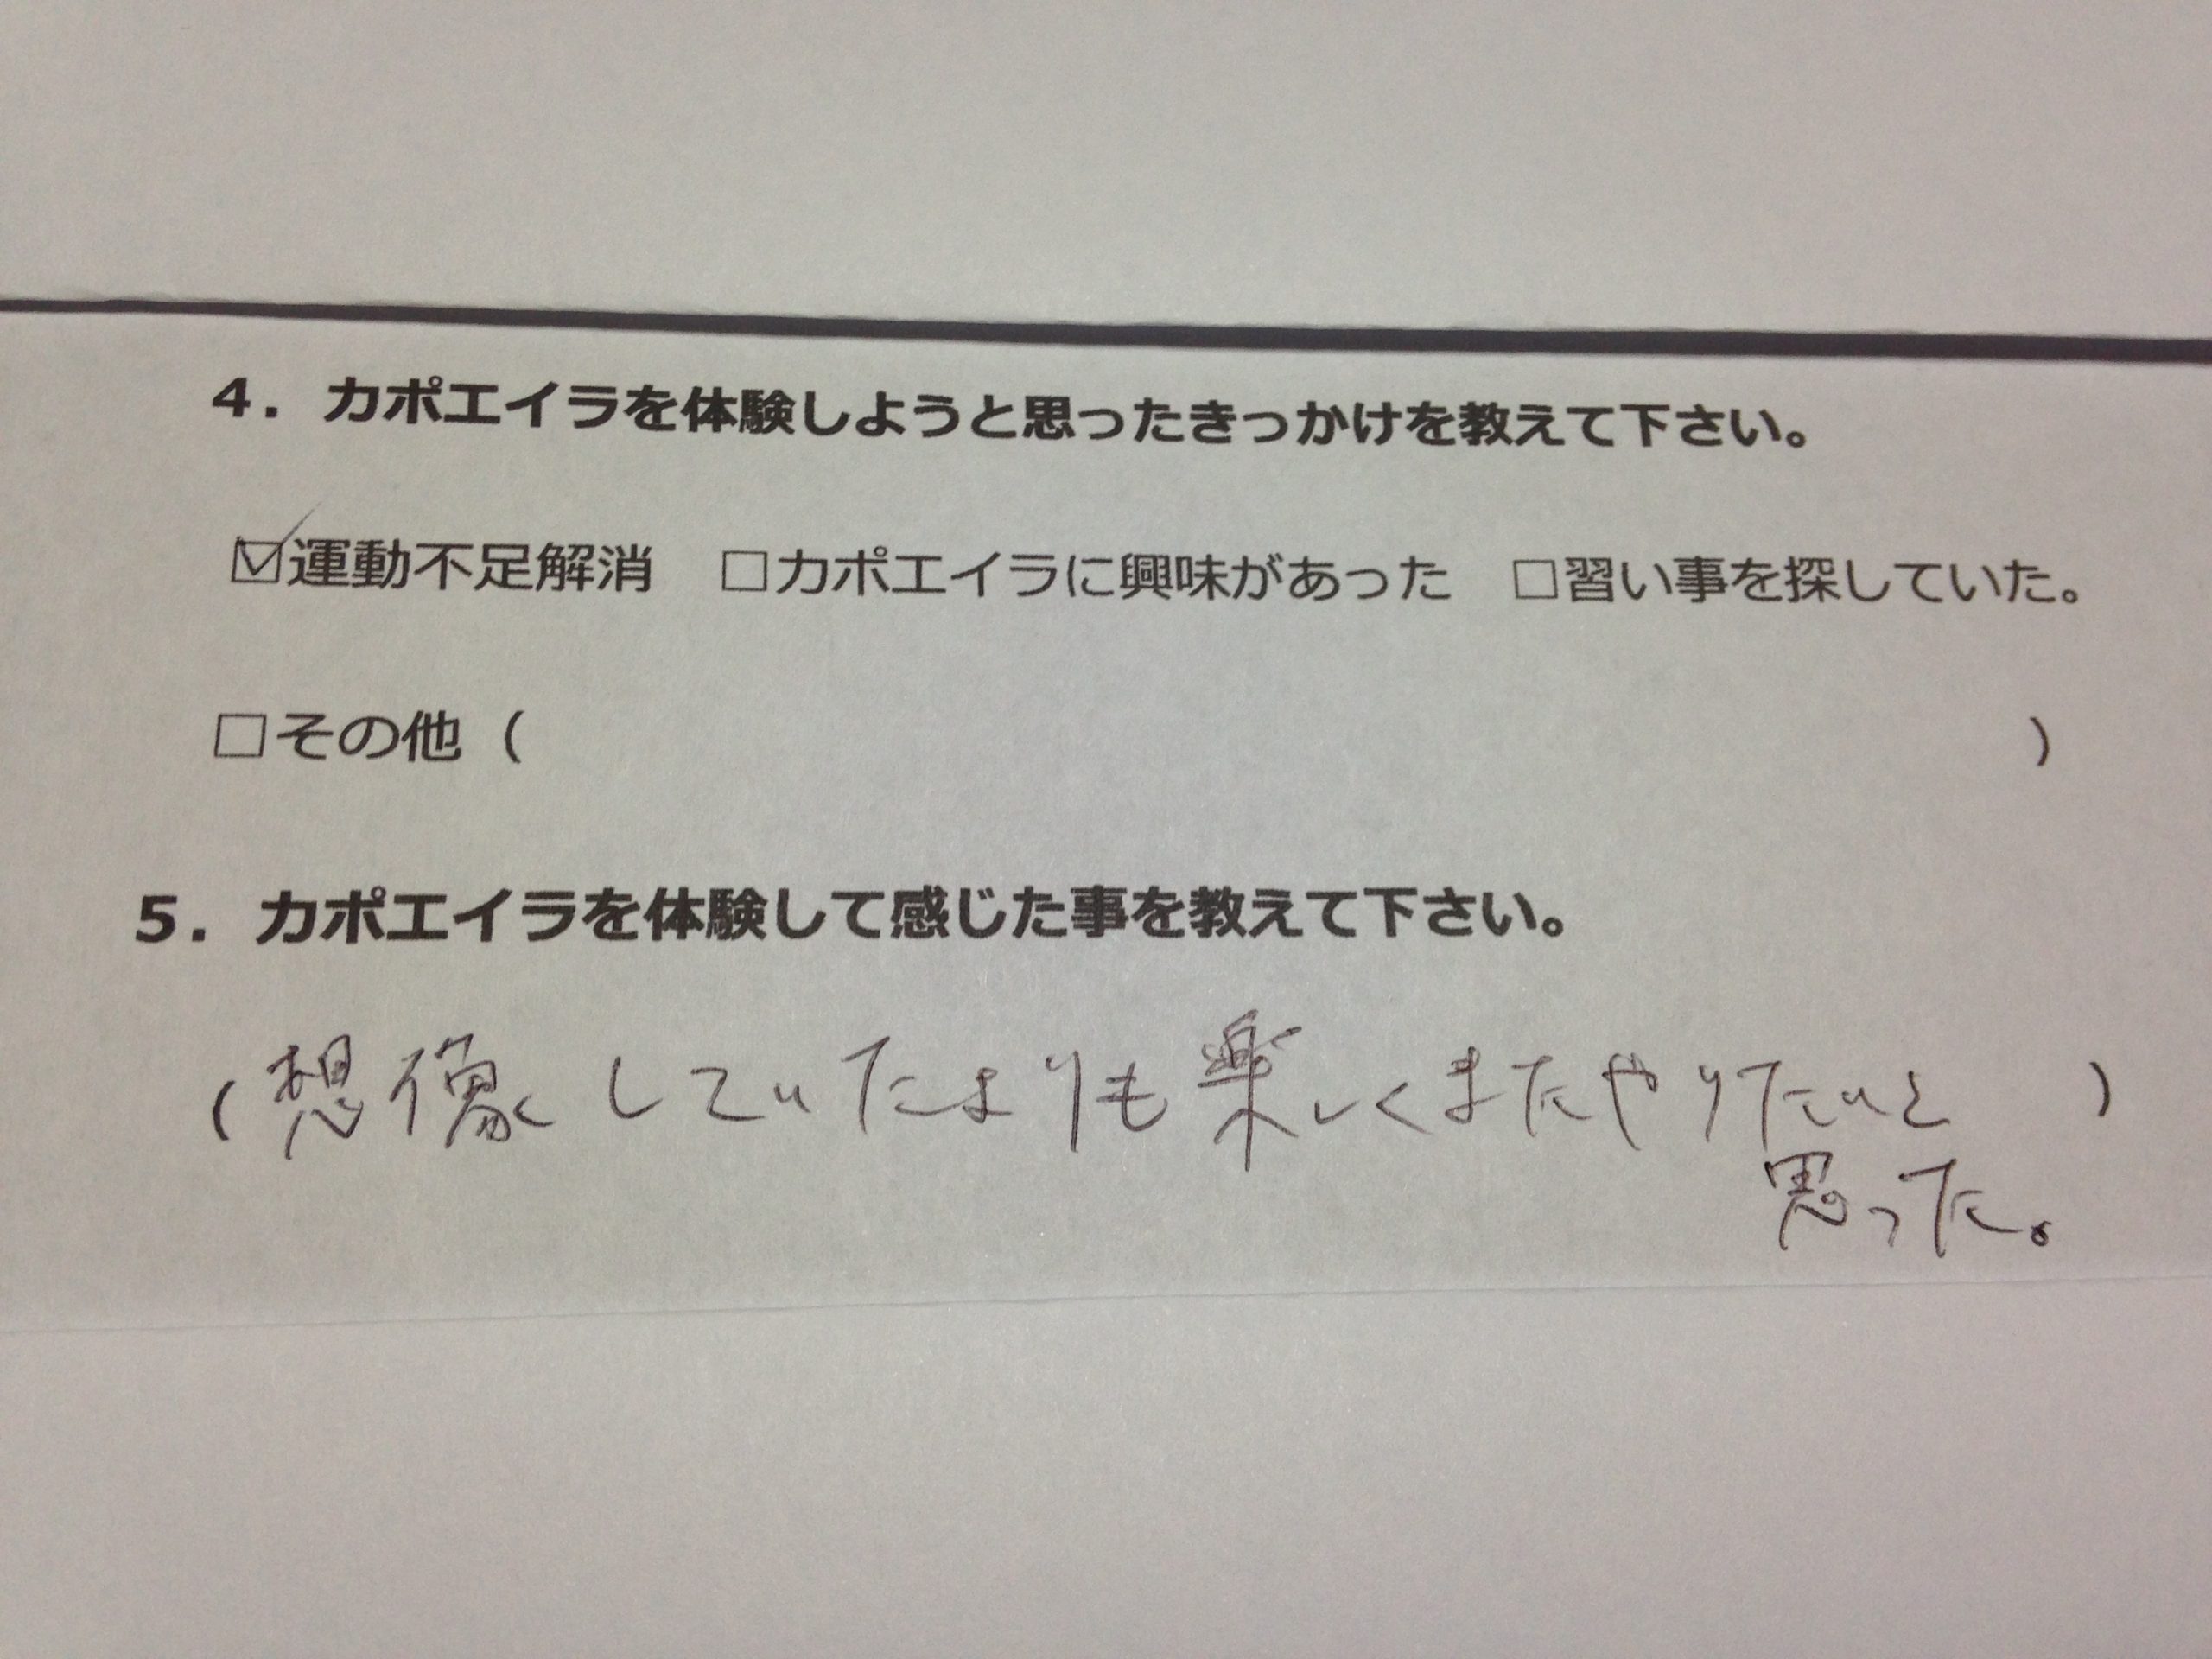 4．カポエイラを体験しようと思ったきっかけを教えて下さい。
☑運動不足解消 □カポエイラに興味があった □習い事を探していた。
□その他（ ）
5．カポエイラを体験して感じた事を教えて下さい。
（想像していたよりも楽しくまたやりたいと ）
思った。